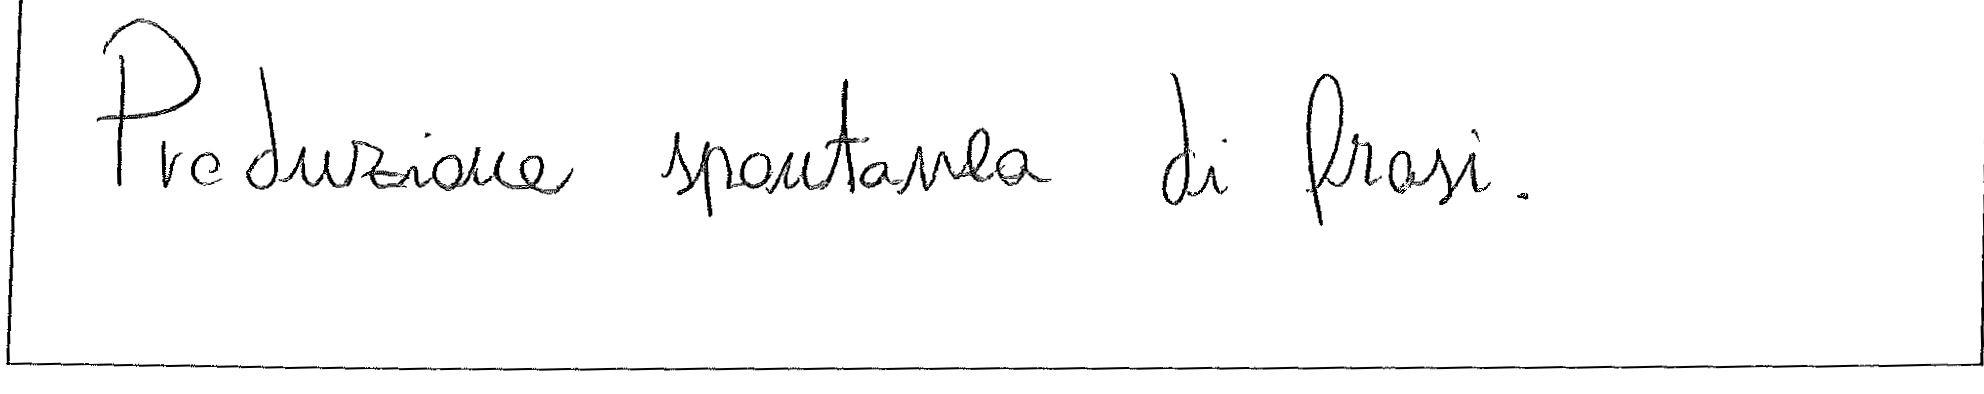 Produzione spontanea di frasi.